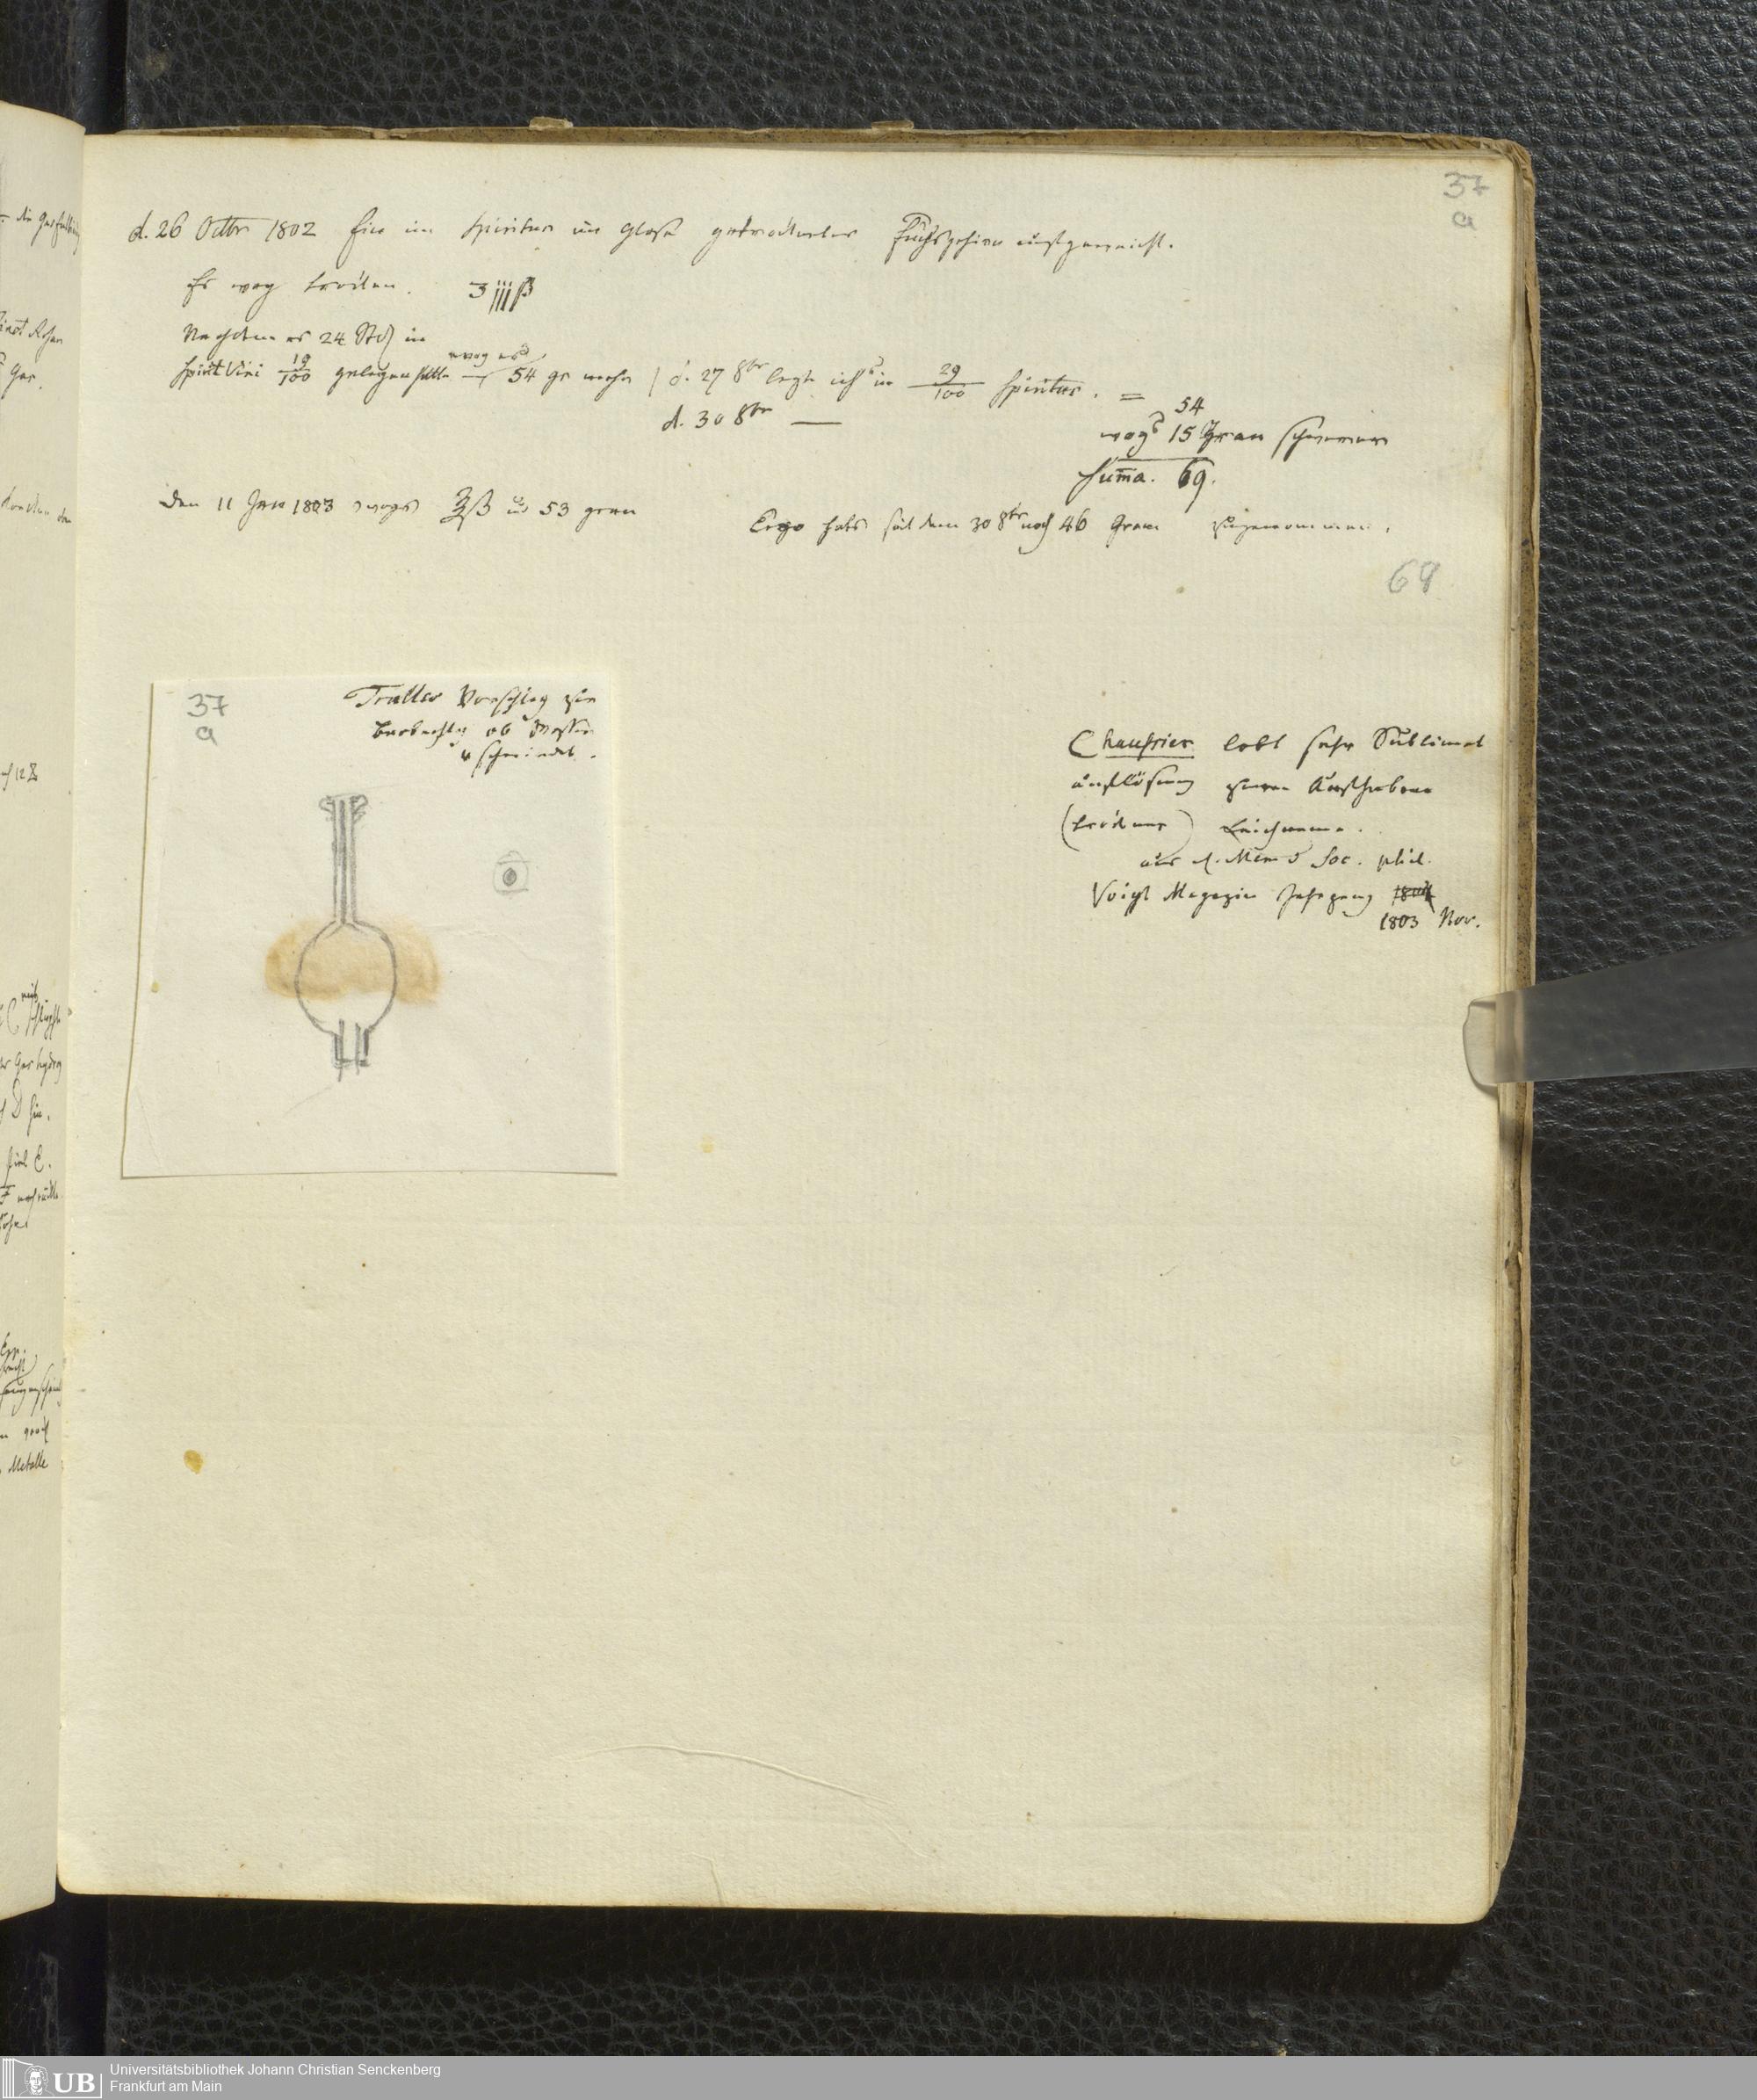 37
a
d. 26 Octbr 1802 Ein im Spiritus im Glase getrocknetes Fuchsgehirn aufgeweicht.
Es wog trocken. ʒiijß
Nachdem es 24 Std in
Spirit Vini 19/100 gelegen hatte wog es 54 gr mehr / d. 27 8br legte ichs in 29/100 Spiritus. =
d. 30 8br —
54
wogs 15 Gran schwerer
Suma. 69.
Den 11 Jan 1803 wogs ℥ß u 53 gran
Ergo hats seit dem 30 8br noch 46 Gran zugenommen.
69
37
a
Tralles Vorschlag zur
Beobachtg ob Wasser
verschwindet.
Chaussier lobt sehr Sublimat
auflösung zum Aufheben
(trockner) Leichname.
aus d. Mem d Soc. phil.
Voigt Magazin Jahrgang
1803 Nov.
die
Gas.
Metalle
UB
Universitätsbibliothek Johann Christian Senckenberg
Frankfurt am Main